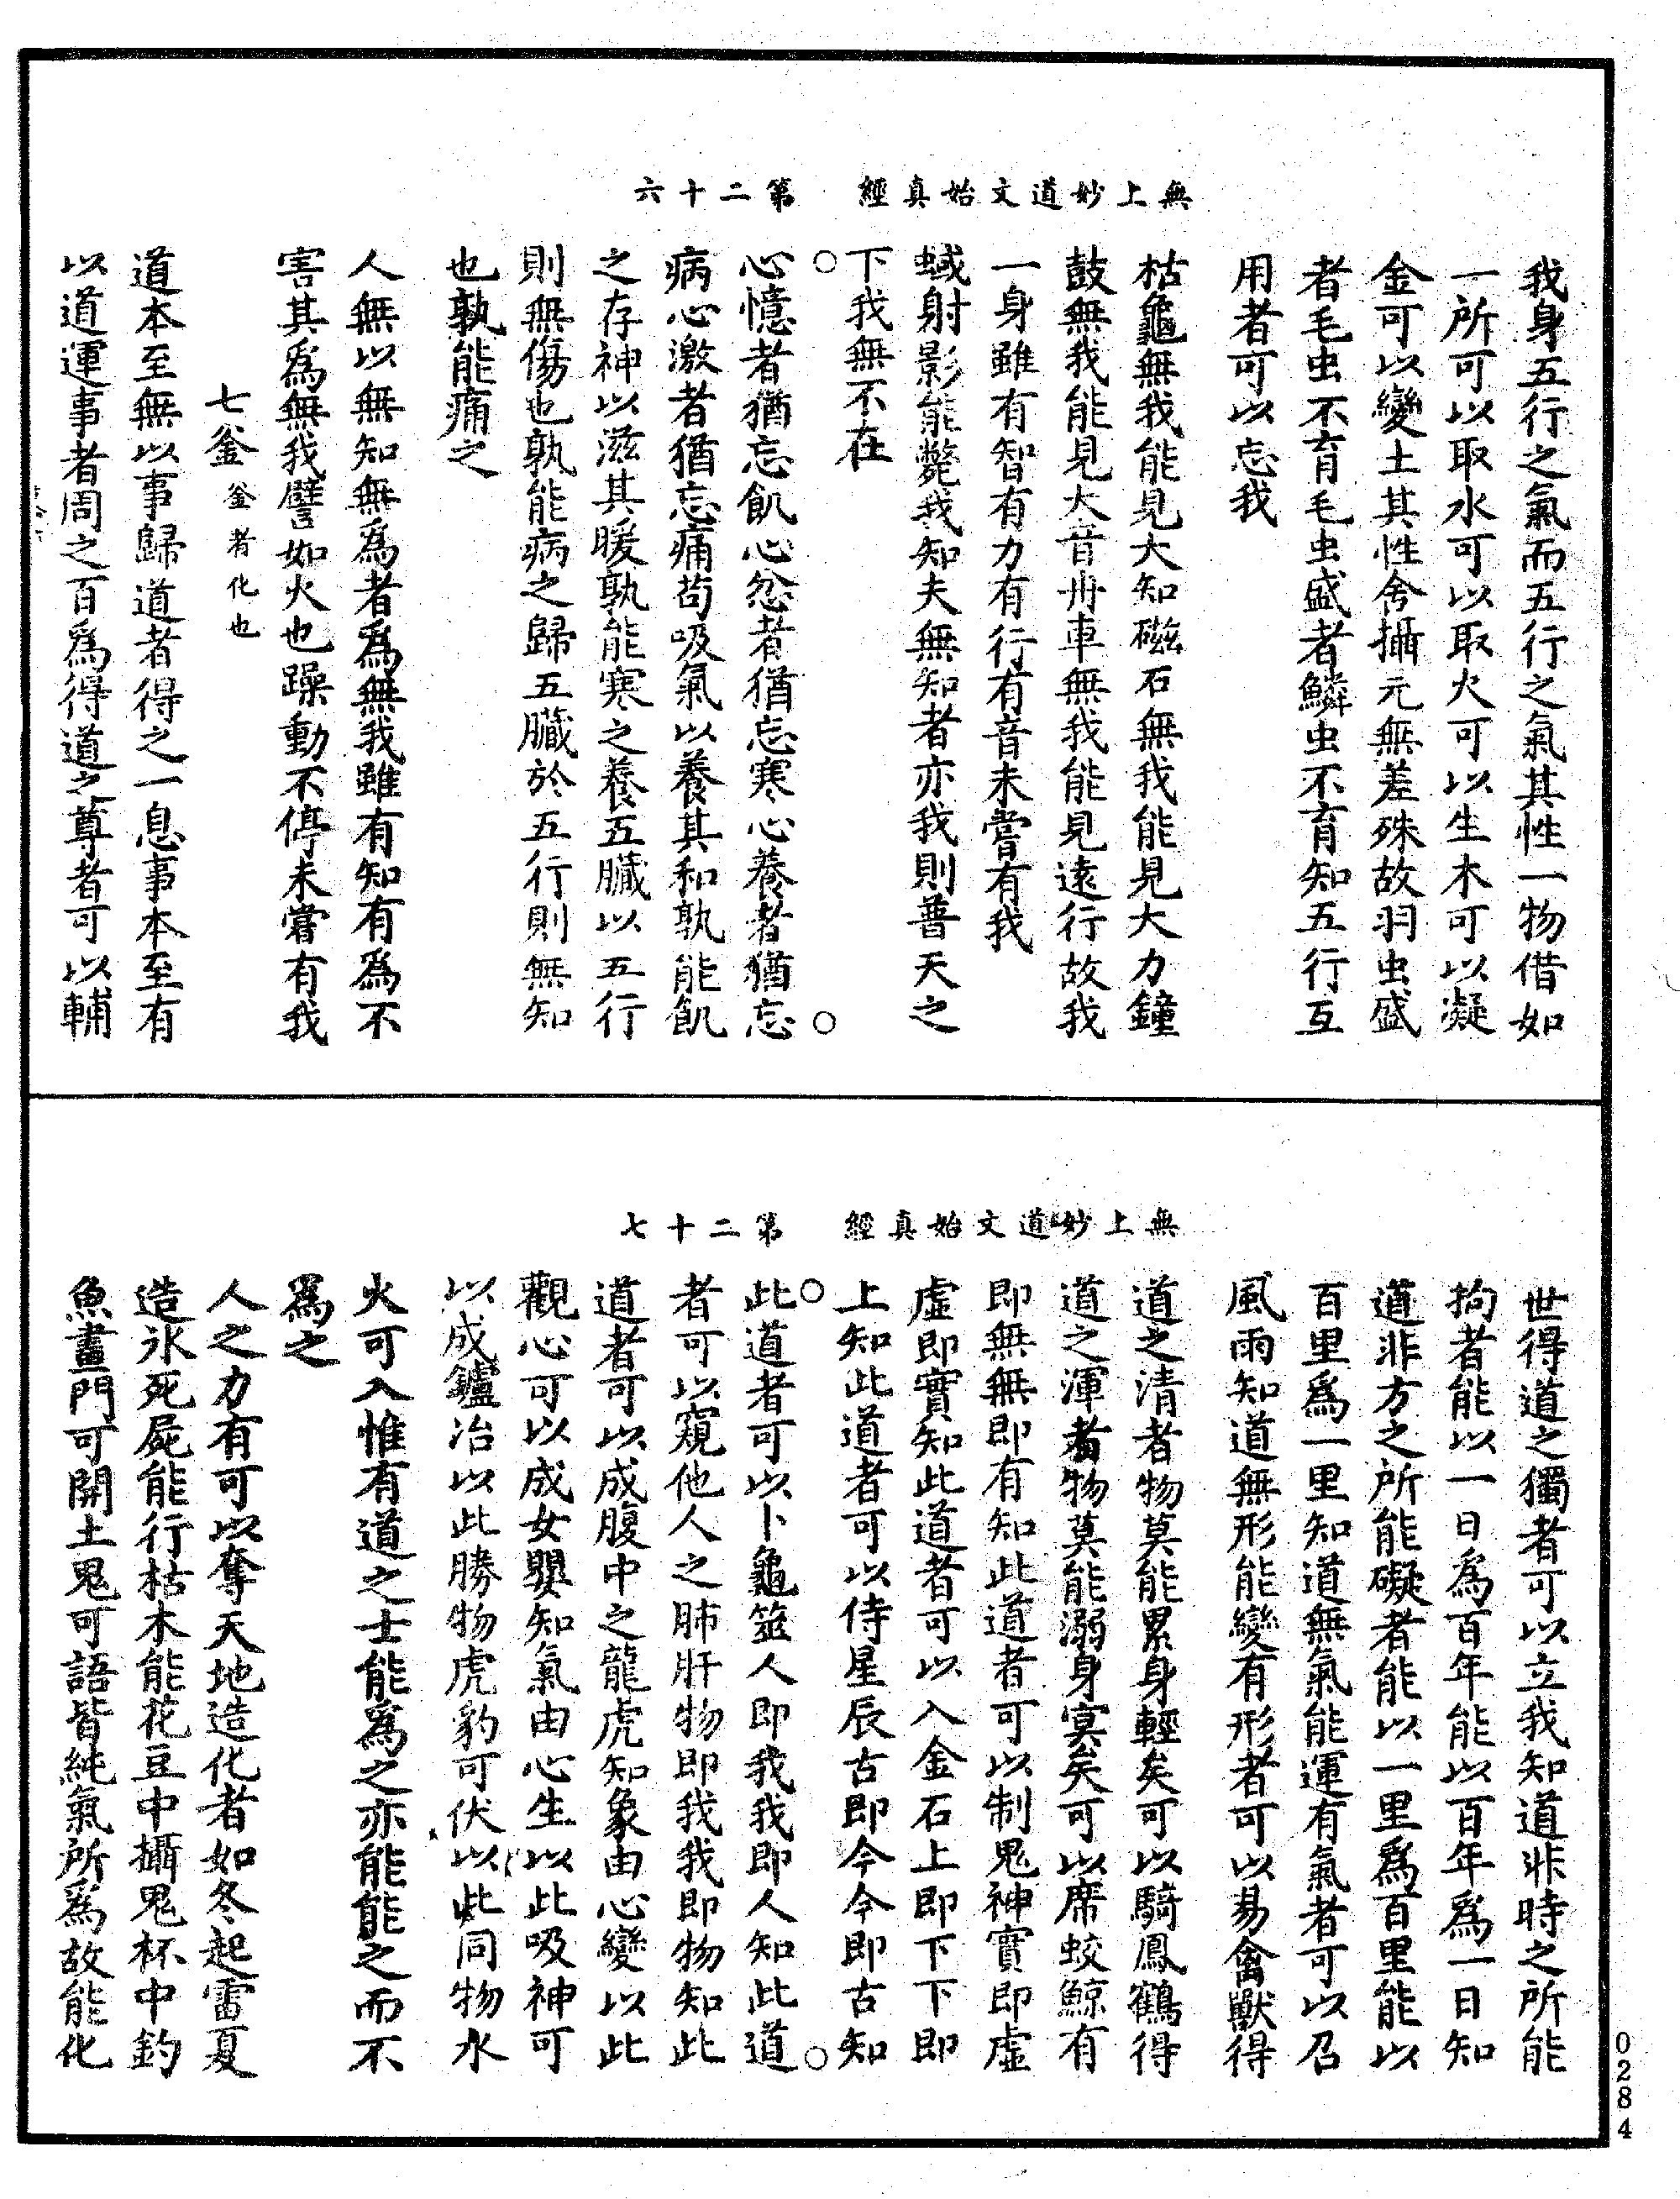 無上妙道文始真經　第二十六
我身五行之氣而五行之氣其性一物借如
一所可以取水可以取火可以生木可以凝
金可以變土其性含攝元無差殊故羽虫盛
者毛虫不育毛虫盛者鱗虫不育知五行互
用者可以忘我
枯龜無我能見大知磁石無我能見大力鐘
鼓無我能見大音舟車無我能見遠行故我
一身雖有智有力有行有音未嘗有我
蜮射影能斃我知夫無知者亦我則普天之
下我無不在
心憶者猶忘飢心忿者猶忘寒心養者猶忘
病心激者猶忘痛苟吸氣以養其和孰能飢
之存神以滋其暖孰能寒之養五臟以五行
則無傷也孰能病之歸五臟於五行則無知
也孰能痛之
人無以無知無為者為無我雖有知有為不
害其為無我譬如火也躁動不停未嘗有我
七釜釜者化也
道本至無以事歸道者得之一息事本至有
以道運事者周之百為得道之尊者可以輔
無上妙道文始真經　第二十七
世得道之獨者可以立我知道非時之所能
拘者能以一日為百年能以百年為一日知
道非方之所能礙者能以一里為百里能以
百里為一里知道無氣能運有氣者可以召
風雨知道無形能變有形者可以易禽獸得
道之清者物莫能累身輕矣可以騎鳳鶴得
道之渾者物莫能溺身冥矣可以席蛟鯨有
即無無即有知此道者可以制鬼神實即虛
虛即實知此道者可以入金石上即下下即
上知此道者可以侍星辰古即今今即古知
此道者可以卜龜筮人即我我即人知此道
者可以窺他人之肺肝物即我我即物知此
道者可以成腹中之龍虎知象由心變以此
觀心可以成女嬰知氣由心生以此吸神可
以成鑪冶以此勝物虎豹可伏以此同物水
火可入惟有道之士能為之亦能能之而不
為之
人之力有可以奪天地造化者如冬起雷夏
造氷死屍能行枯木能花豆中攝鬼杯中釣
魚畫門可開土鬼可語皆純氣所為故能化
0284